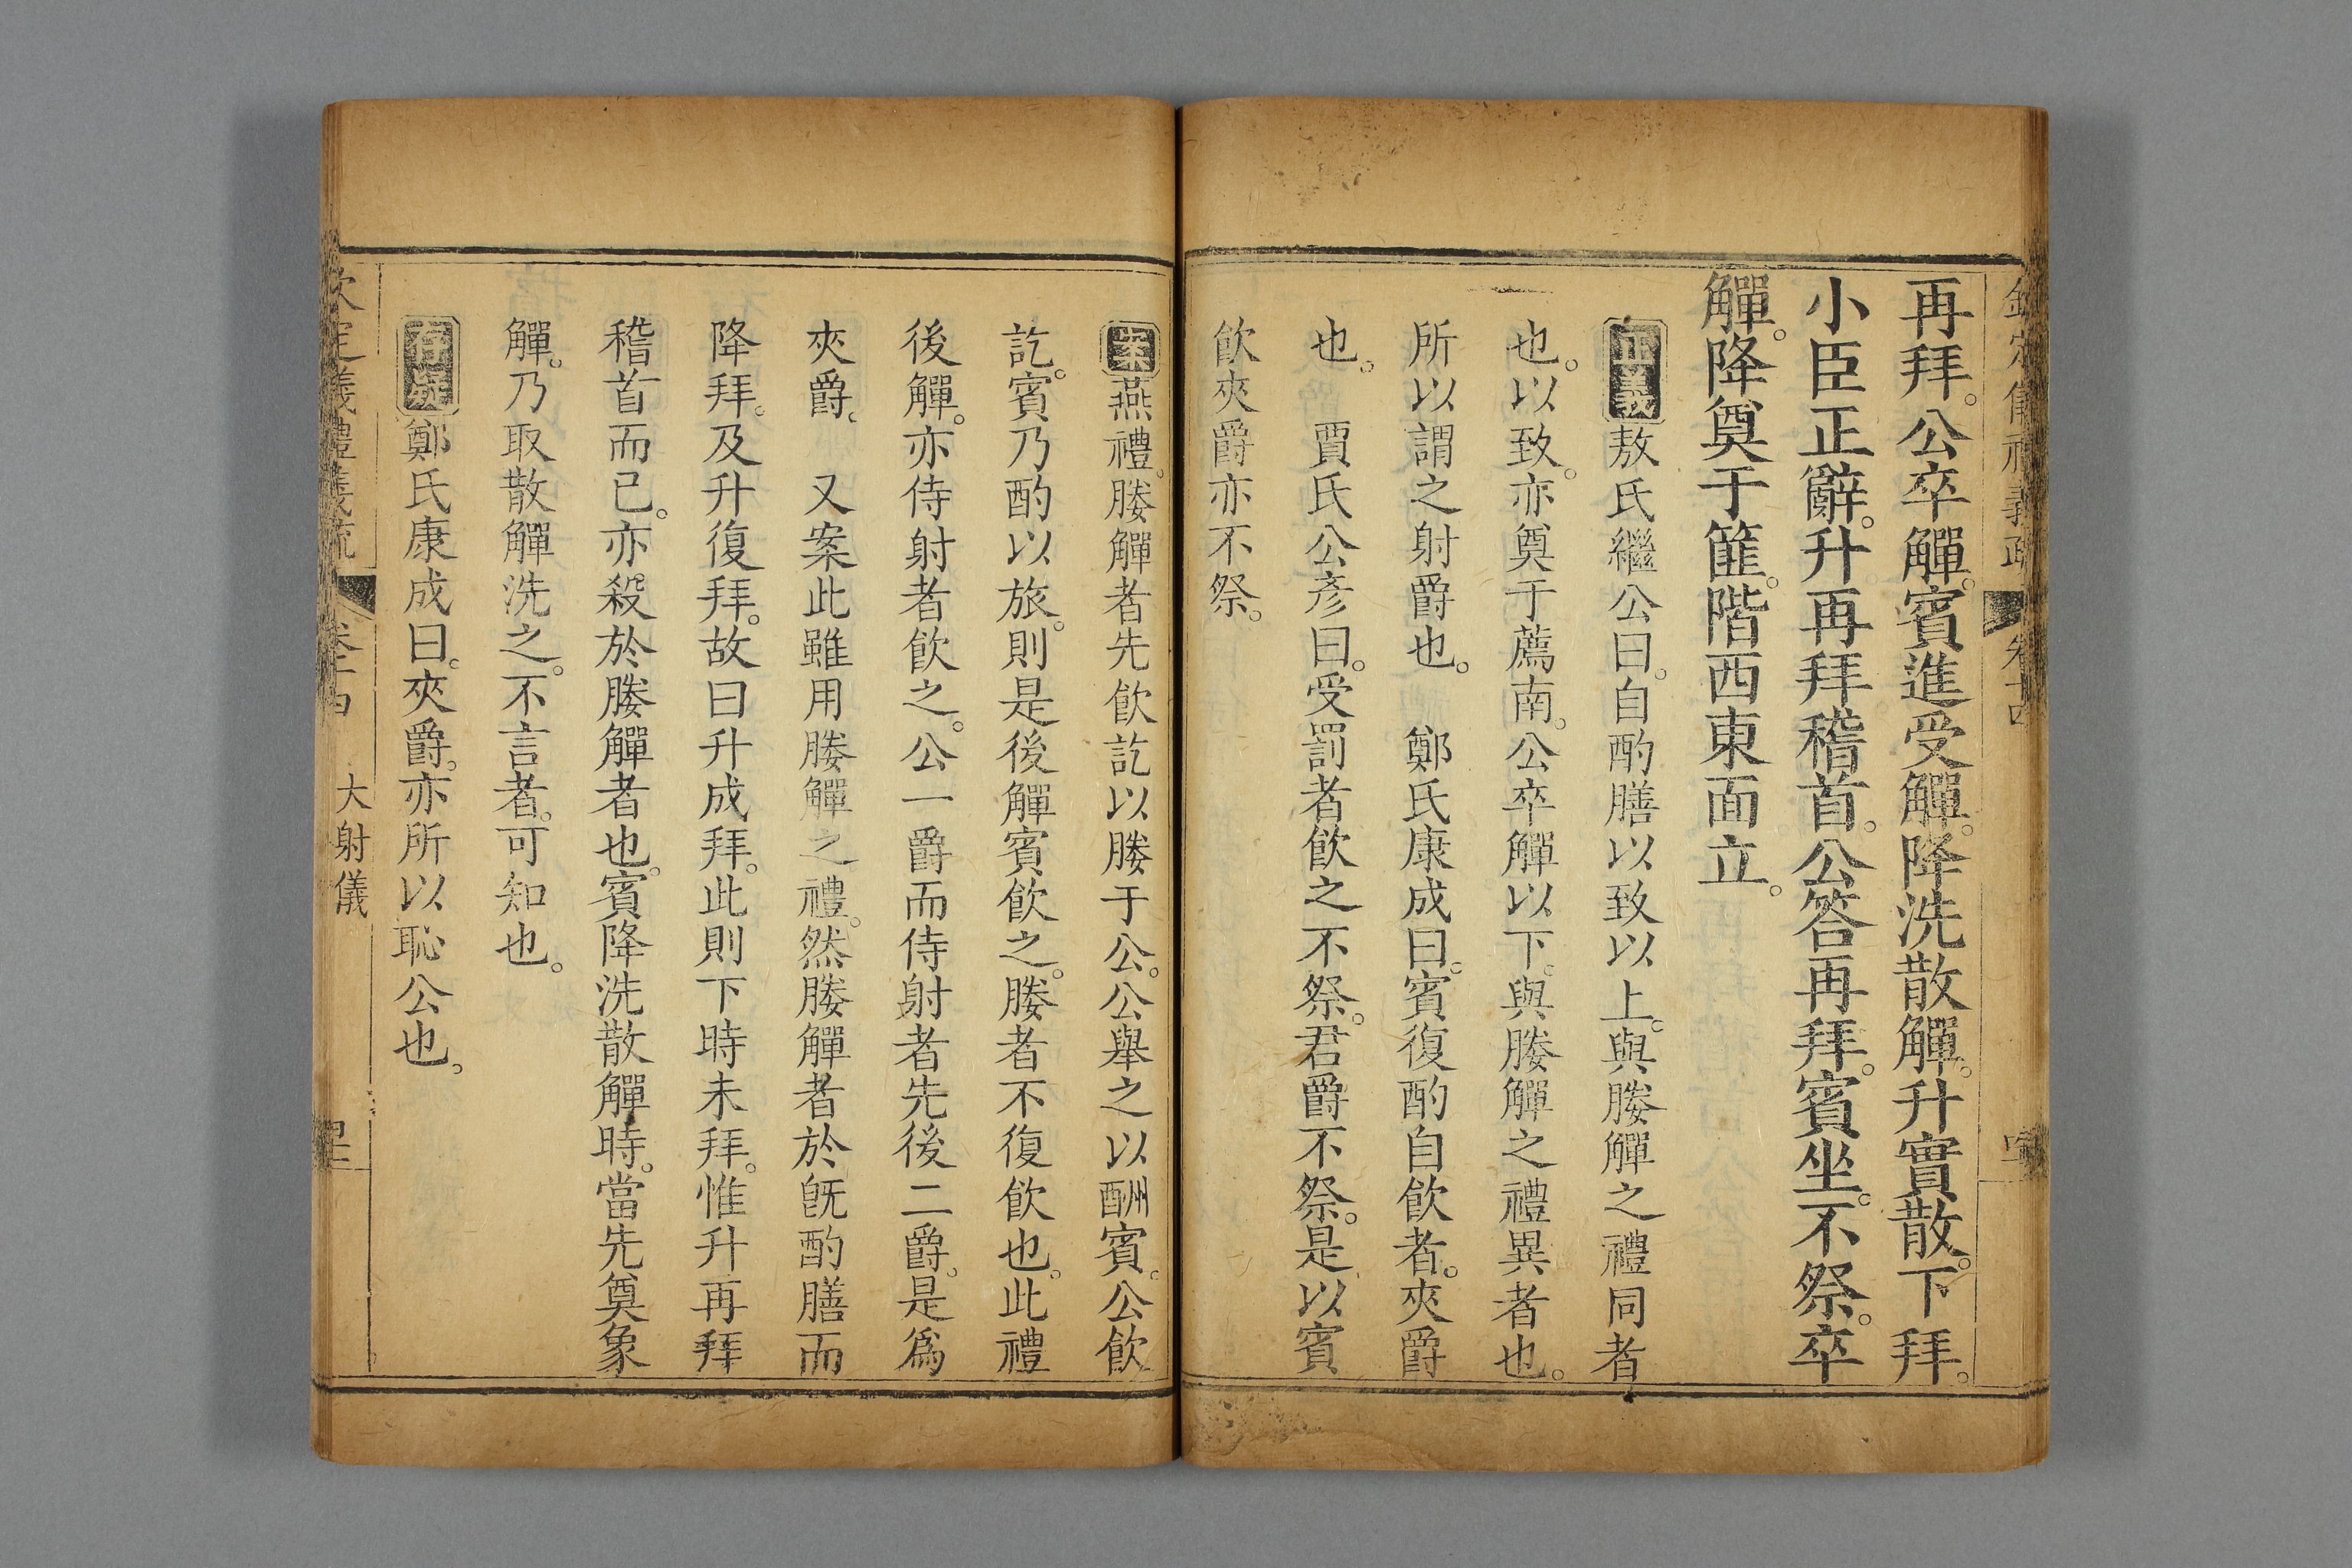 再拜。公卒觶。賓進受觶。降洗散觶。升實散。下拜。
小臣正辭。升再拜稽首。公答再拜。賓坐。不祭。卒
觶。降奠于篚。階西東面立。
正義敖氏繼公曰。自酌膳以致以上。與媵觶之禮同者
也。以致。亦奠于薦南。公卒觶以下。與媵觶之禮異者也。
所以謂之射爵也。 鄭氏康成曰。賓復酌自飲者。夾爵
也。 賈氏公彥曰。受罰者飲之不祭。君爵不祭。是以賓
飲夾爵亦不祭。
案燕禮。媵觶者先飲訖以媵于公。公舉之以酬賓。公飲
訖。賓乃酌以旅。則是後觶賓飲之。媵者不復飲也。此禮
後觶。亦侍射者飲之。公一爵而侍射者先後二爵。是爲
夾爵。 又案此雖用媵觶之禮。然媵觶者於旣酌膳而
降拜。及升復拜。故曰升成拜。此則下時未拜。惟升再拜
稽首而已。亦殺於媵觶者也。賓降洗散觶時。當先奠象
觶。乃取散觶洗之。不言者。可知也。
存疑鄭氏康成曰。夾爵。亦所以恥公也。
欽定儀禮義疏 卷十四 大射儀